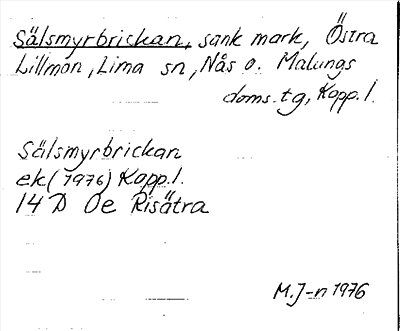 Sälsmyrbrickan, sank mark, Östra
Lillmon, Lima sn, Nås o. Malungs
doms.tg, Kopp.l.
Sälsmyrbrickan
ek (1976) Kopp.l.
14 D Oe Risätra
M.J-n 1976